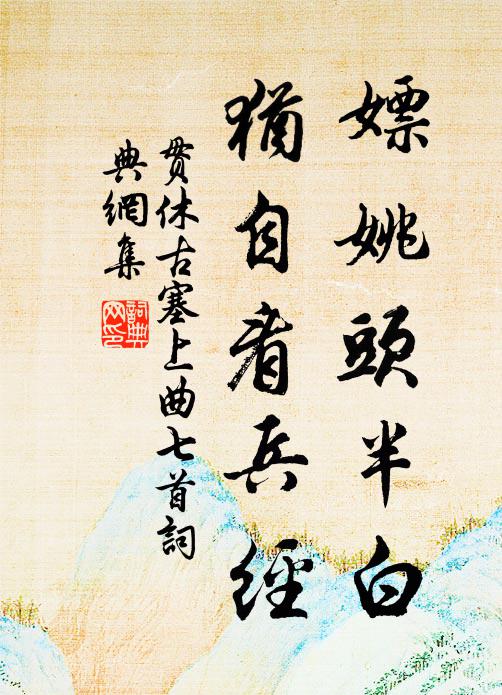 嫖姚頭半白
猶自看兵經
貫休古塞上曲七首詞
典網集
詞典
网印